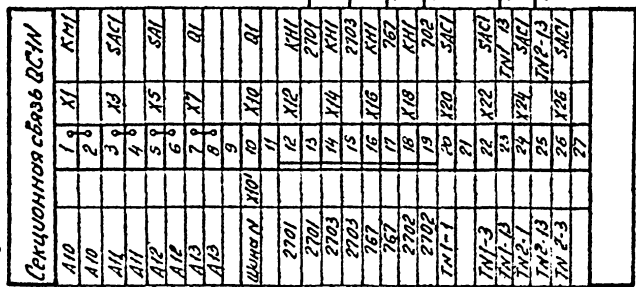 Секционная связь QC1N
A10 1 X1 KM1
A10 2
A11 3 X3 SAC1
A11 4
A12 5 X5 SA1
A12 6
A13 7 X7 Q1
A13 8
9
Шина N X10' 10 X10 Q1
11
2701 12 X12 KH1
2701 13 2701
2703 14 X14 KH1
2703 15 2703
767 16 X16 KH1
767 17 767
2702 18 X18 KH1
2702 19 702
TN1-1 20 X20 SAC1
21
TN1-3 22 X22 SAC1
TN1-13 23 TN1 13
TN2-1 24 X24 SAC1
TN2-13 25 TN2-13
TN 2-3 26 X26 SAC1
27